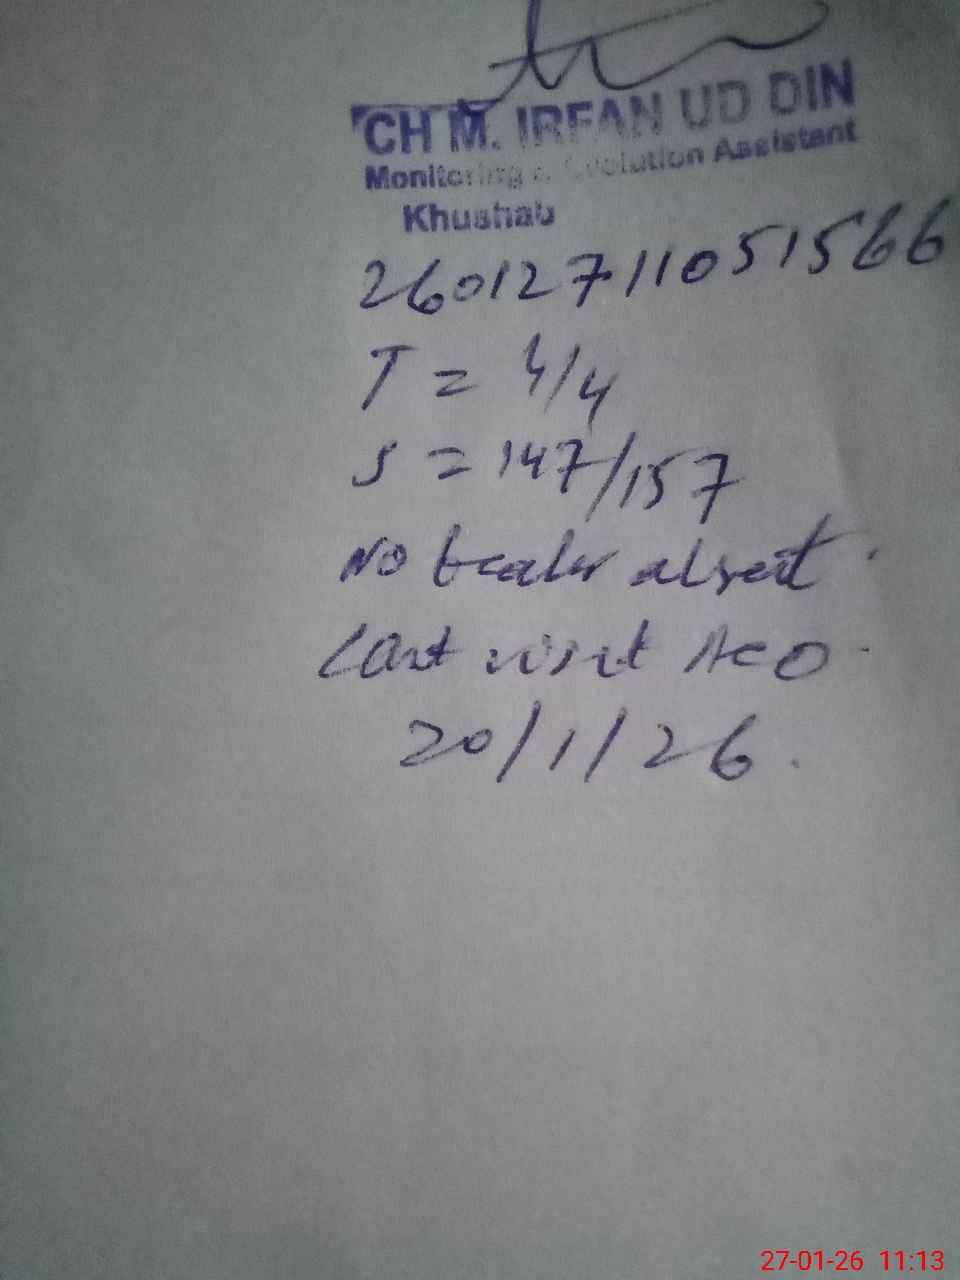 CH M. IRFAN UD DIN
Monitoring & Evolution Assistant
Khushab
26012711051566
T = 4/4
S = 147/157
No teacher absent.
Last visit AEO.
20/1/26.
27-01-26 11:13